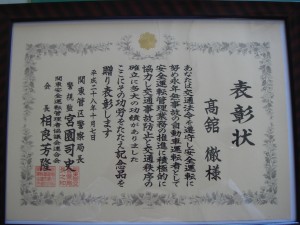 表彰状
高舘 徹様
あなたは交通法令を遵守し安全運転に
努め永年無事故の自動車運転者として
安全運転管理業務の推進に積極的に
協力し交通事故防止と交通秩序の
確立に多大の功績がありました
ここにその功労をたたえ記念品を
贈り表彰します
平成二十八年十月七日
関東管区警察局長
警視監 宮園司史
関東安全運転管理者協議会連合会
会長 相良芳隆